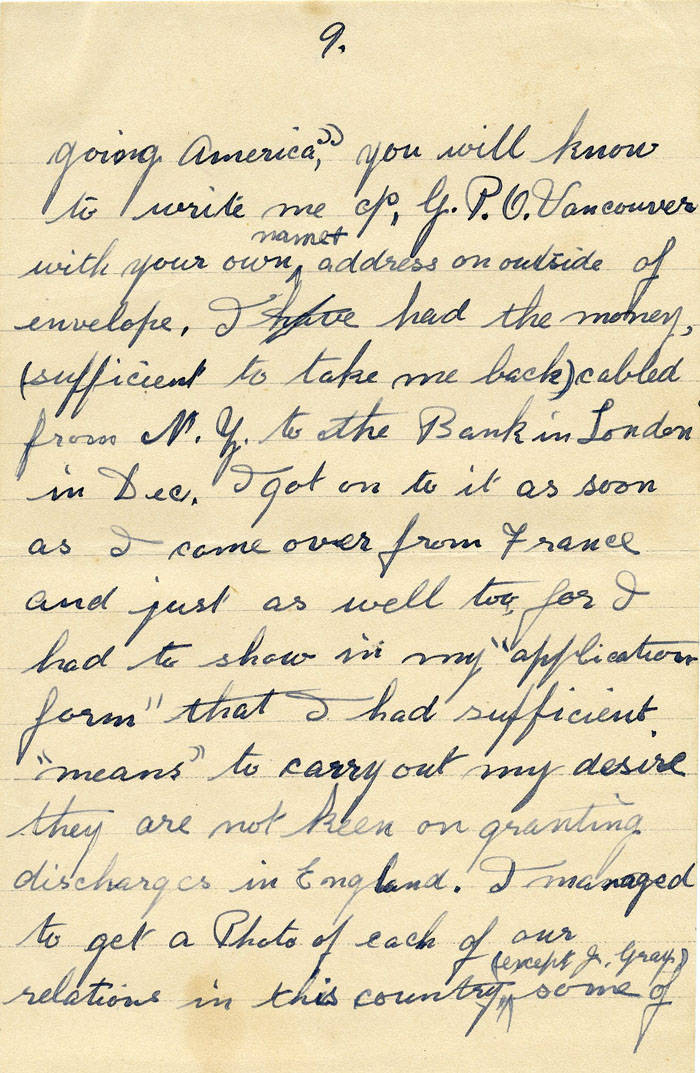 9.
going America," you will know
to write me c/o, G.P.O. Vancouver
with your own name + address on outside of
envelope. I have had the money,
(sufficient to take me back) cabled
from N.Y. to the Bank in London
in Dec. I got on to it as soon
as I come over from France
and just as well too, for I
had to show in my "application
form" that I had sufficient
"means" to carry out my desire
they are not keen on granting
discharges in England. I managed
to get a Photo of each of our
relations in this country, (except J. Gray) some of